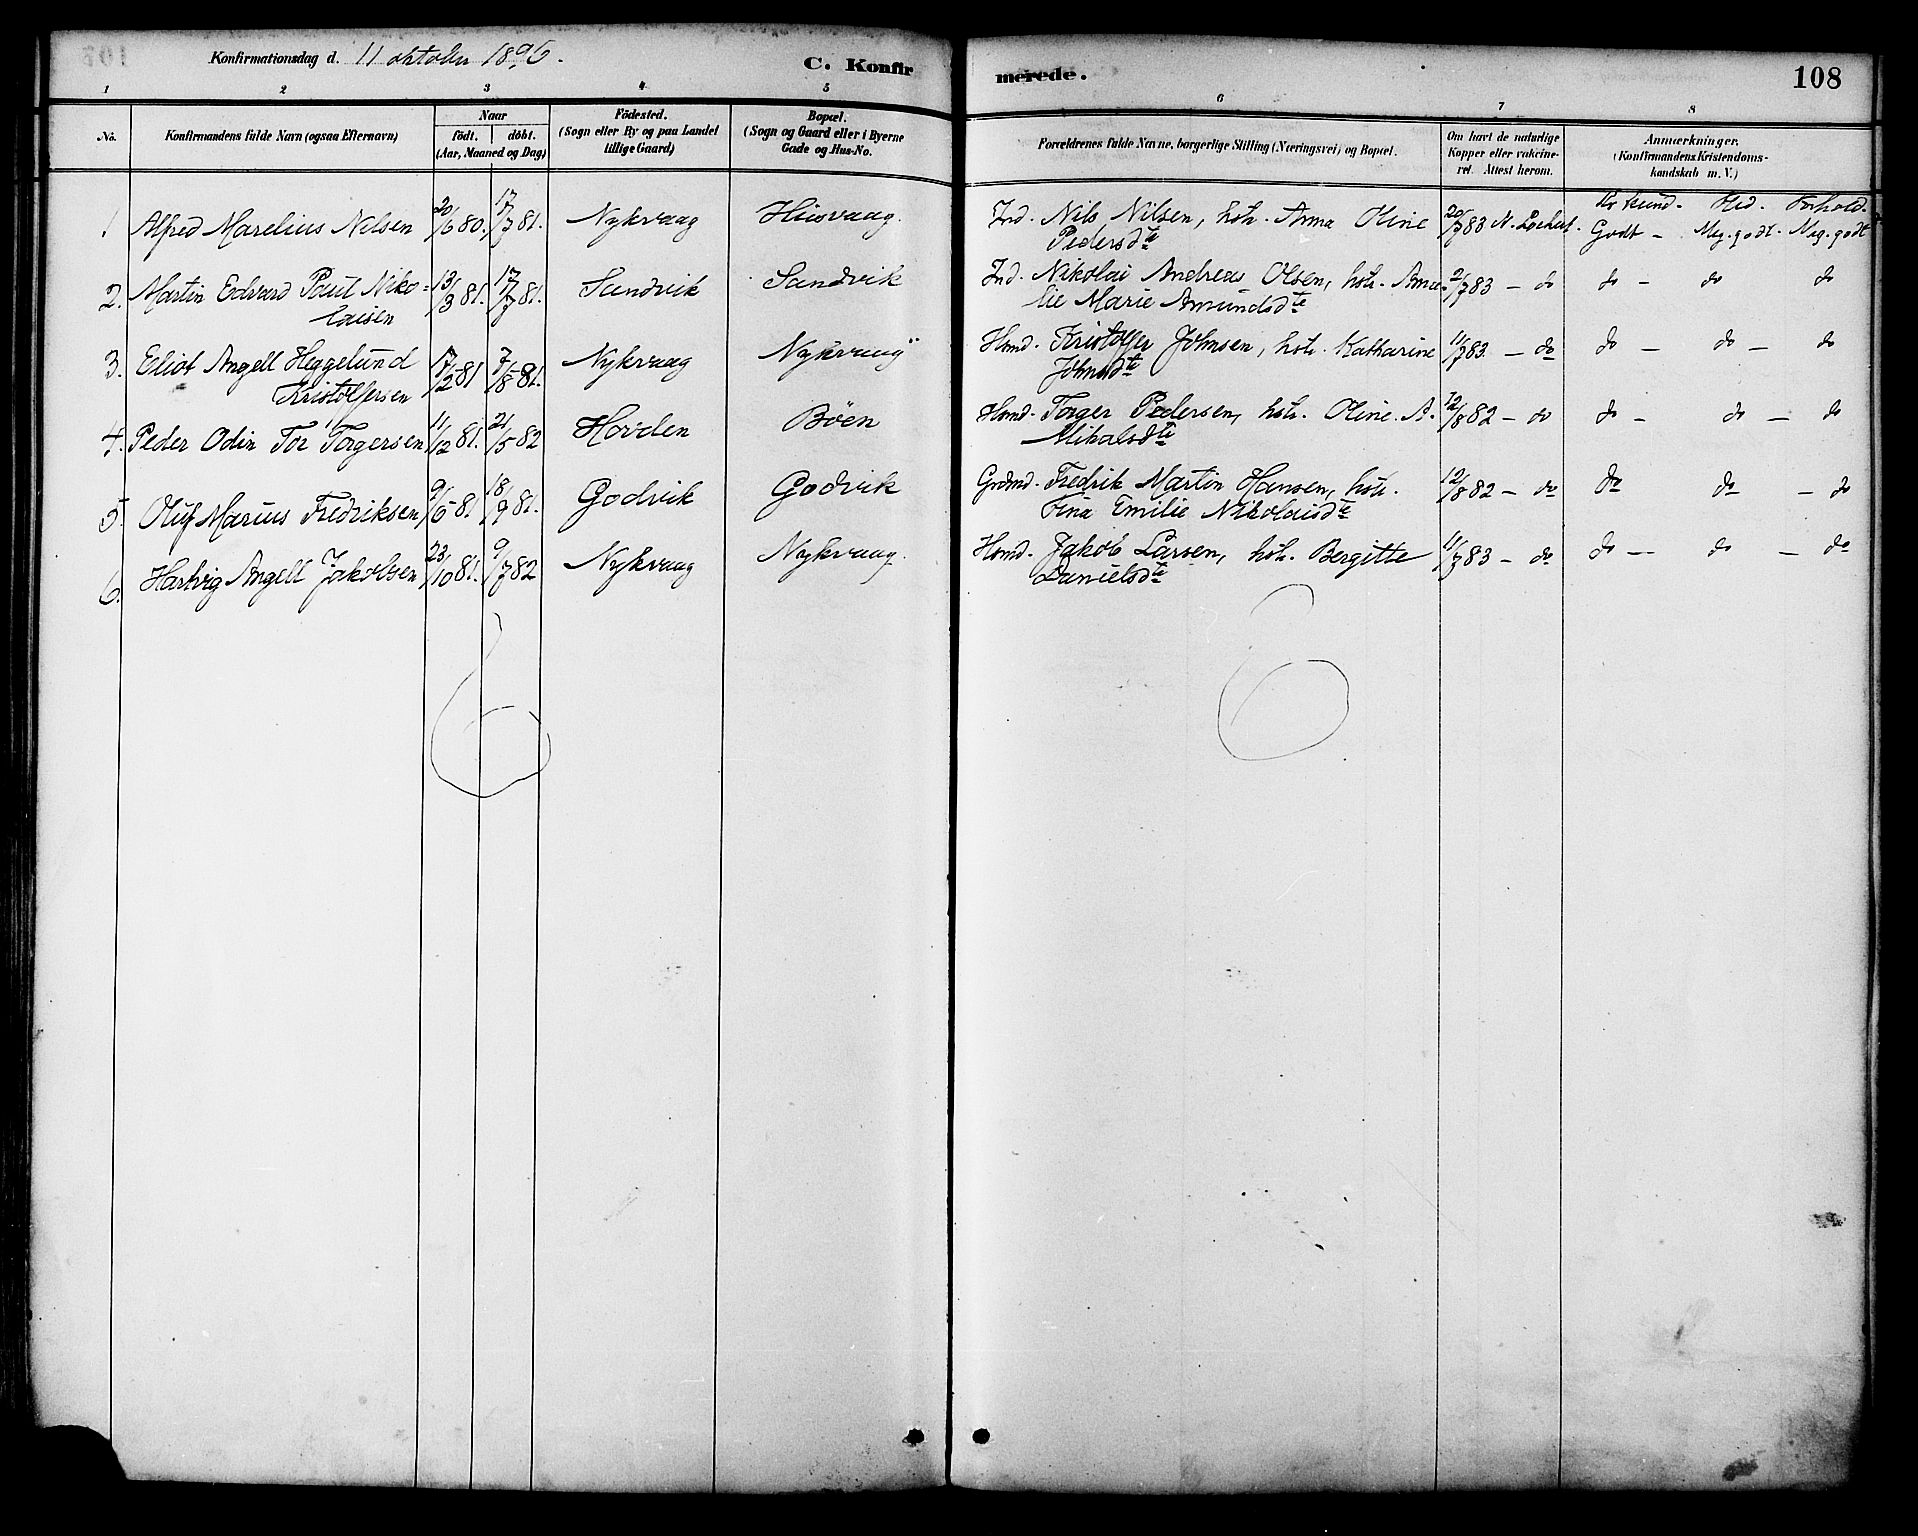 Konfirmationsdag d. 11 oktober 1896.
C. Konfirmerede.
108
1 2 3 4 5 6 7 8
No. Konfirmandens fulde Navn (ogsaa Efternavn) Naar födt. döbt. (Aar, Maaned og Dag) Födested. (Sogn eller By og paa Landet tillige Gaard) Bopæl. (Sogn og Gaard eller i Byerne Gade og Hus-No. Forældrenes fulde Navne, borgerlige Stilling (Næringsvei) og Bopæl. Om havt de naturlige Kopper eller vakcineret. Attest herom. Anmærkninger. (Konfirmandens Kristendomskundskab m. V.)
Kr. kund. - Flid. Forhold.
1 Alfred Marelius Nilsen 20/6 80. 17/7 81. Nykvaag Husvaag. Ind. Nils Nilsen, hstr. Anna Oline 20/7 83 N. Lochert. Godt - Meg. godt. Meg. godt
Pedersdte
2. Martin Edvard Paul Niko= 13/3 81. 17/7 81. Sandvik Sandvik Ind. Nikolai Andreas Olsen, hstr. Ama- 2/7 83 - do do - do do
laisen lie Marie Amundsdte
3. Eliot Angell Heggelund 17/12 81 7/8 81. Nykvaag Nykvaag Hmd. Kristoffer Johnsen, hstr. Katharine 11/7 83 - do do - do - do
Kristoffersen Johnsdte
4. Peder Odin Tor Torgersen 11/12 81. 21/5 82 Hovden Böen Hmd. Torger Pedersen, hstr. Oline. A. 12/8 82 - do do - do - do
Mikalsdte
5. Oluf Marius Fredriksen 9/5 81 18/9 81. Godvik Godvik Grdmd. Fredrik Martin Hansen, hstr. 12/8 82 - do do do - do
Fina Emilie Nikolaisdte
6. Hartvig Angell Jakobsen 23/10 81. 9/7 82 Nykvaag Nykvaag. Hmd. Jakob Larsen, hstr. Bergitte 11/7 83 - do do - do - do
Danielsdte